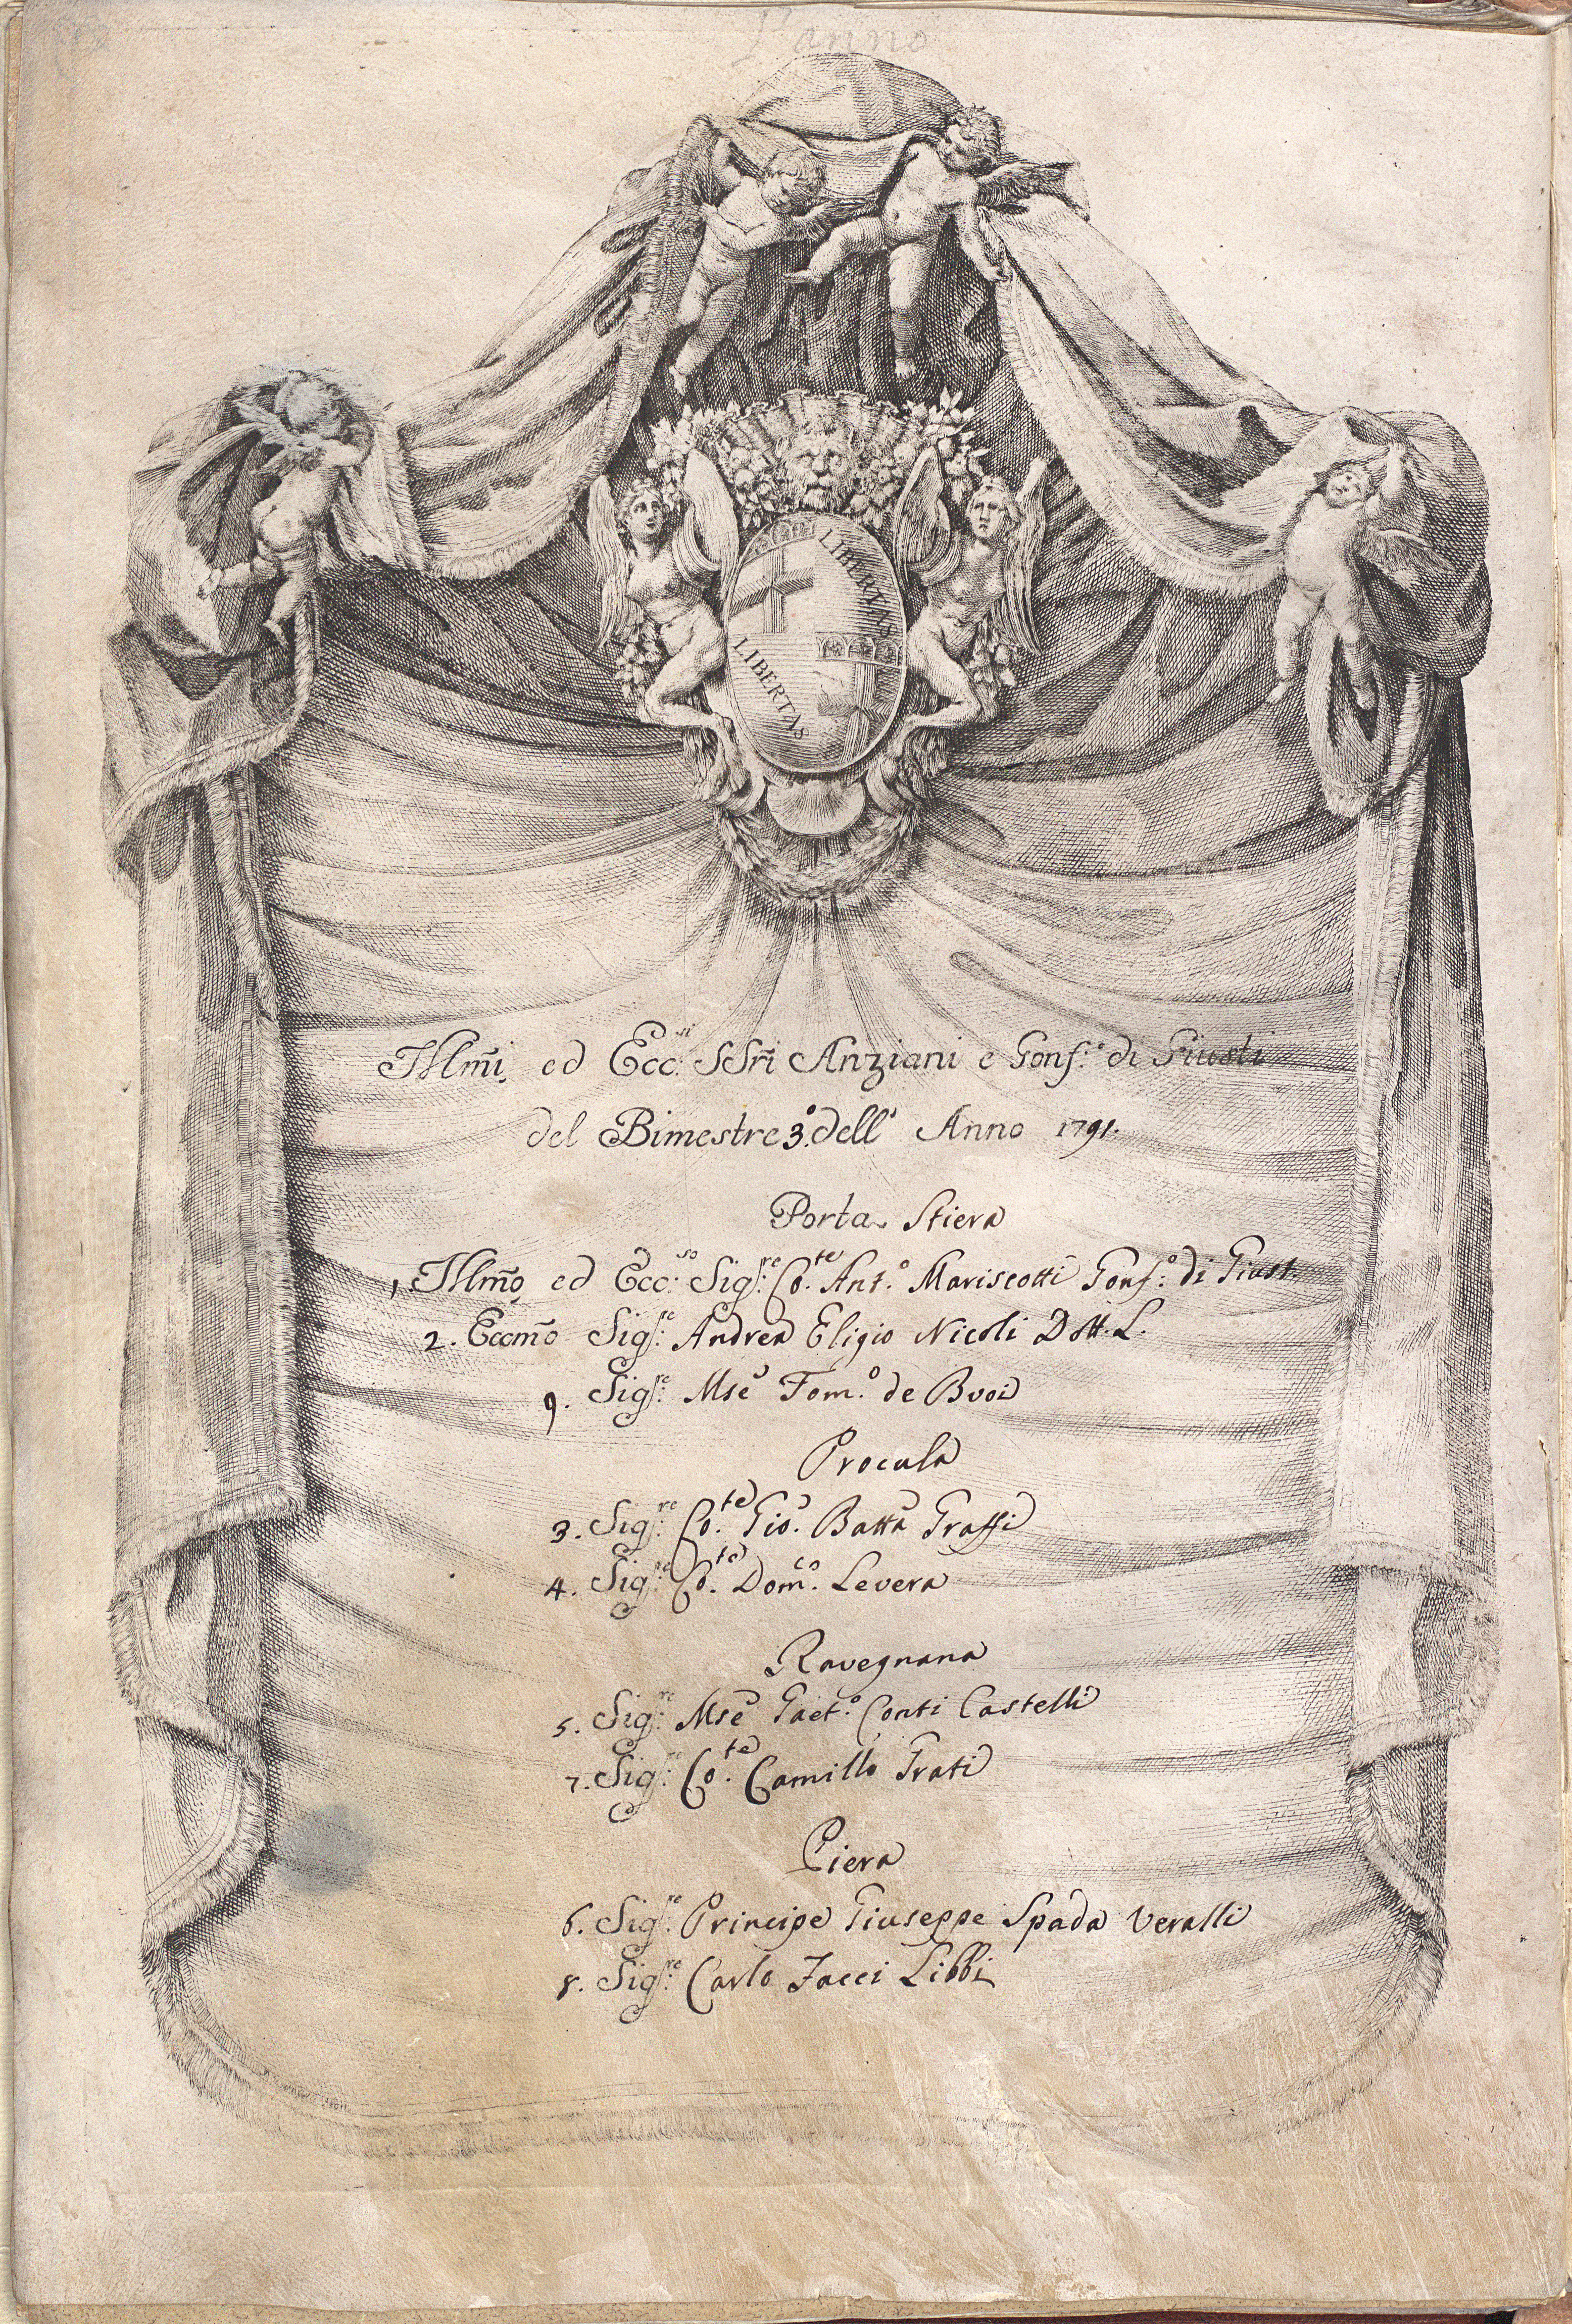 L'anno
LIBERTAS
LIBERTAS
Illm̃i ed Ecc:si SSri Anziani e Gonf:o di Giusti
del Bimestre 3.o dell' Anno 1791.
Porta Stiera
1, Illm̃o ed Ecc:so Sig:re Co:te Ant.o Mariscotti Gonf:o di Giust.
2. Eccm̃o Sig:re Andrea Eligio Nicoli Dott. L.
9. Sig:re Mse Tom.o de Buoi
Procula
3. Sig:re Co:te Gio. Batta Grassi
4. Sig:re Co:te Dom.co Levera
Ravegnana
5. Sig:re Mse Gaet.o Conti Castelli
7. Sig:re Co:te Camillo Grati
Piera
6. Sig:re Principe Giuseppe Spada Veralli
8. Sig:re Carlo Jacci Libbi